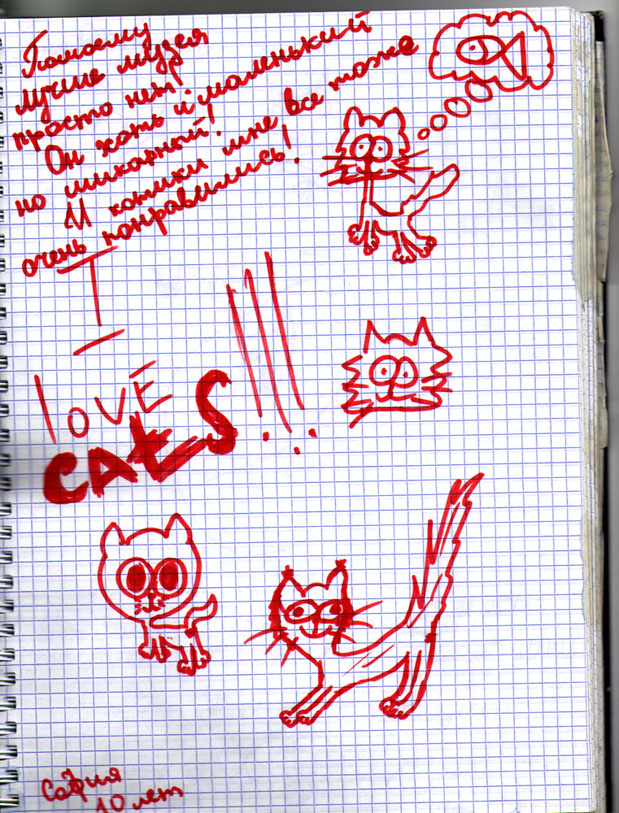 Помоему
лучше музея
просто нет!
Он хоть и маленький
но шикарный!
И котики мне все тоже
очень понравились!
I
LOVE
CATS!!!
София
10 лет